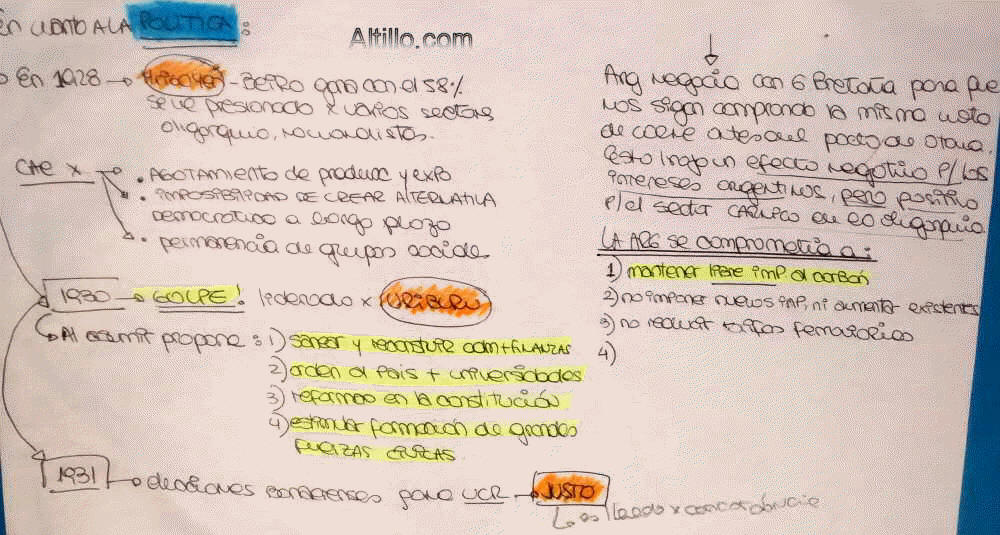 En cuanto a la POLITICA:
Altillo.com
En 1928 → Hipolito - Beiro gana con el 58%
se ve presionado x varios sectores
oligarquia, nacionalistas.
CAE x
• AGOTAMIENTO de produx y expo
• IMPOSIBILIDAD DE CREAR ALTERNATIVA
Democratica a largo plazo
• permanencia de grupos sociale
1930 → GOLPE! liderado x URIBURU
Al asumir propone: 1) sanear y reconstruir adm + FINANZAS
2) orden al pais + universidades
3) reformas en la constitución
4) estimular formación de grandes
FUERZAS CIVICAS
1931 → elecciones bonaerenses gana UCR → JUSTO
es x concordancia
Arg negocia con G Bretaña para que
nos sigan comprando la misma
de carne antes del pacto de Otawa.
Esto trajo un efecto negativo p/ los
intereses argentinos, pero positivo
p/ el sector de la oligarquia
LA ARG se comprometia a:
1) mantener libre imp al carbón
2) no imponer nuevos imp, ni aumentar existentes
3) no reducir tarifas ferroviarias
4)